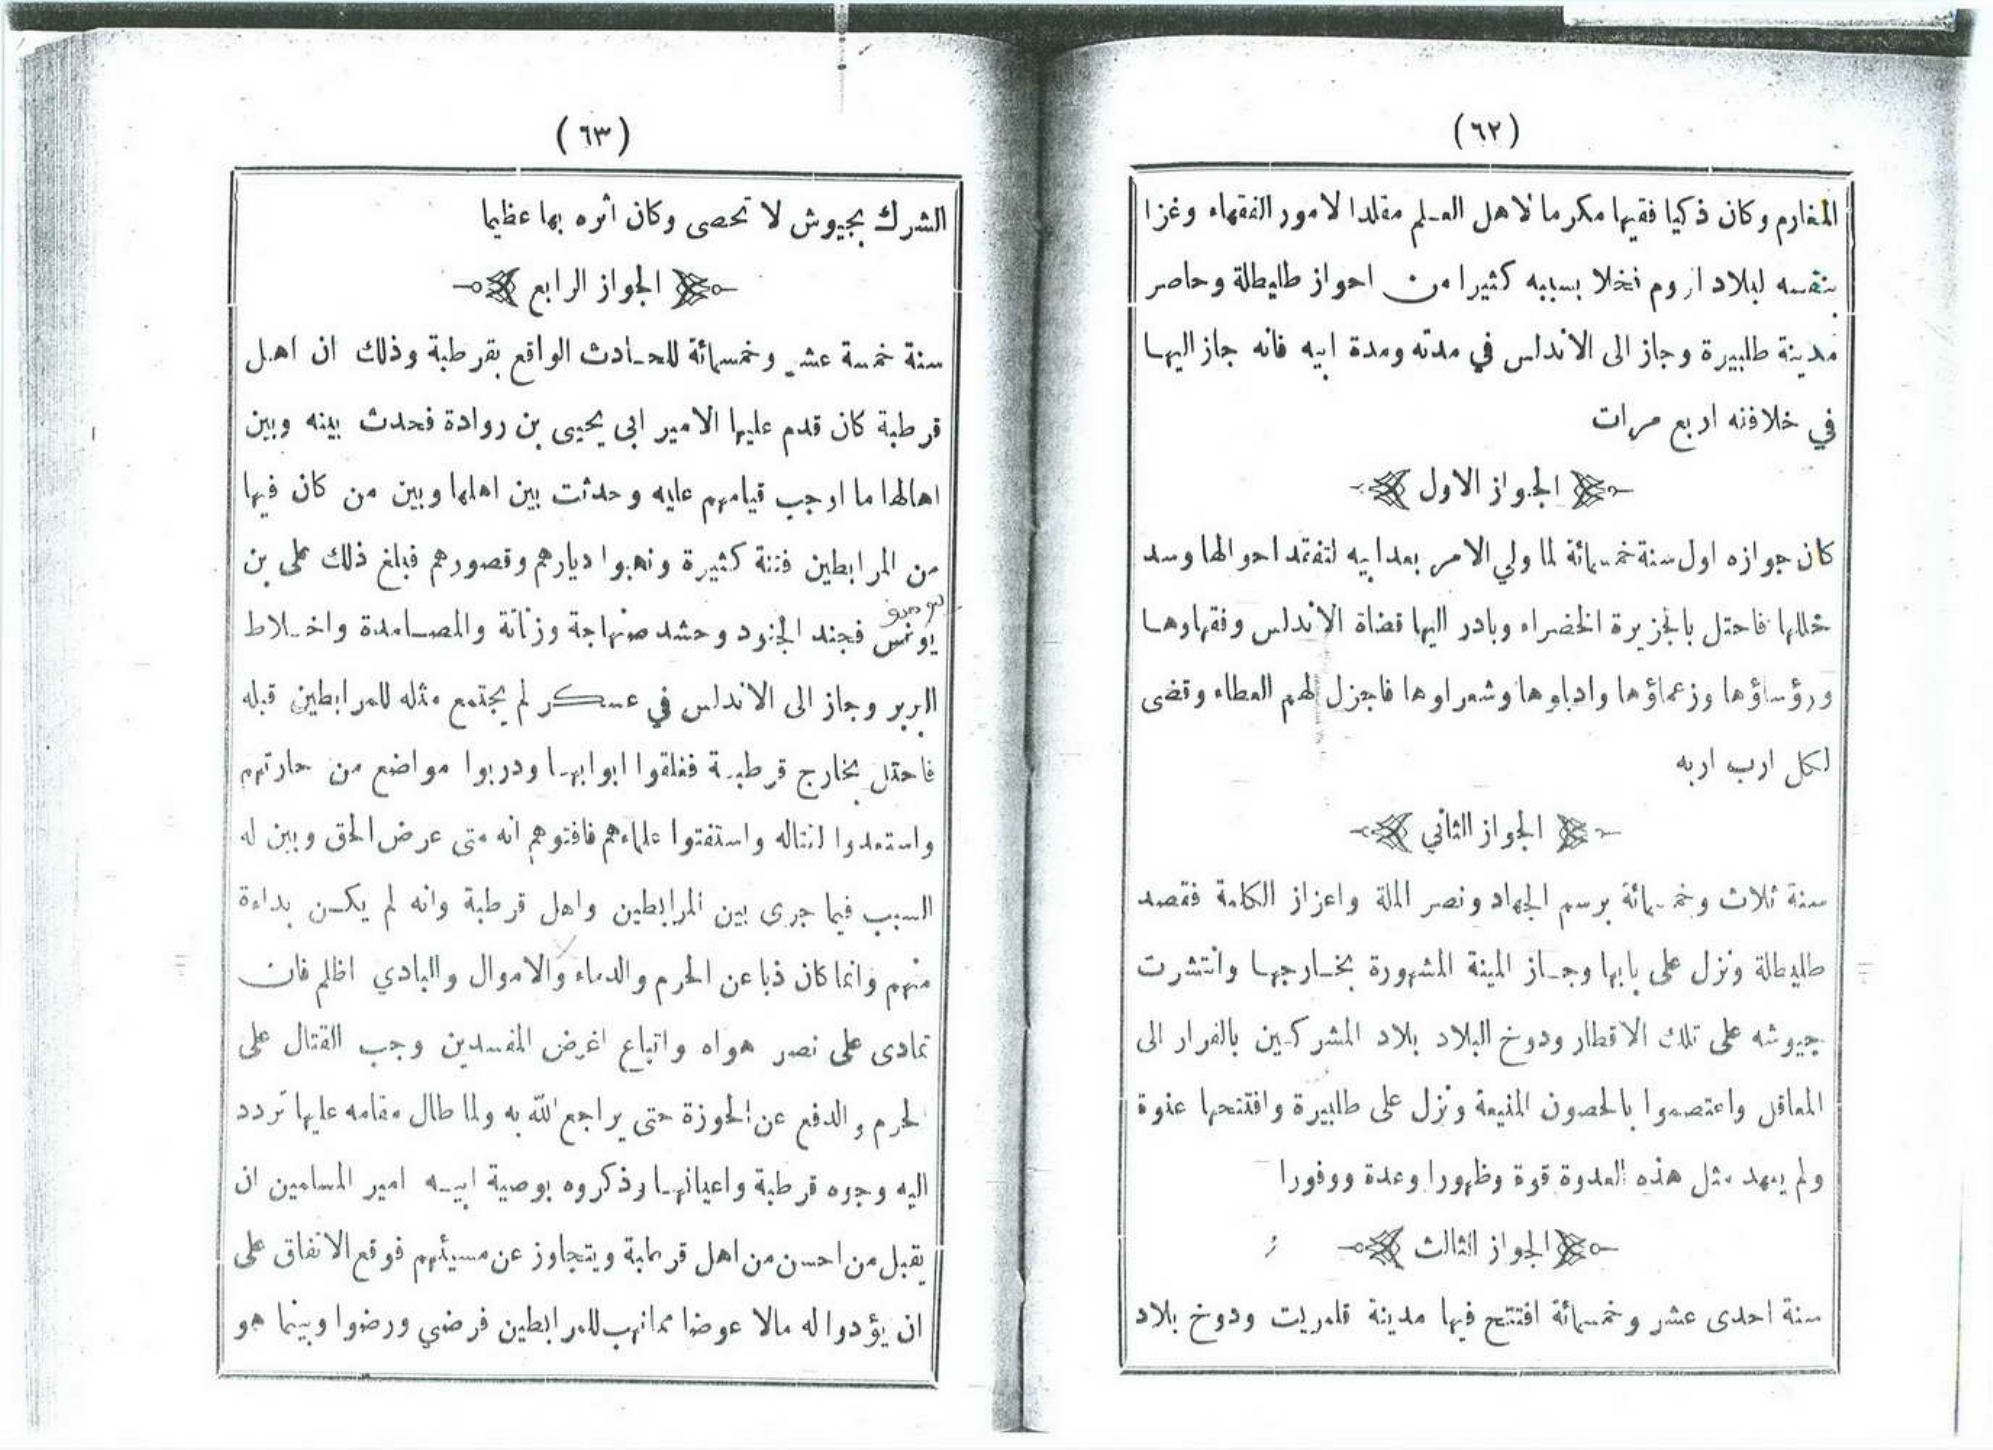 (٦٢)
المغارم وكان ذكيا فقيها مكرما لاهل العلم مقلدا لامور الفقهاء وغزا
بنفسه لبلاد الروم نخلا بسببه كثيرا من احواز طليطلة وحاصر
مدينة طلبيرة وجاز الى الاندلس في مدته ومدة ابيه فانه جاز اليها
في خلافته اربع مرات
الجواز الاول
كان جوازه اول سنة خمسمائة لما ولي الامر بعد ابيه لتفقد احوالها وسد
خللها فاحتل بالجزيرة الخضراء وبادر اليها قضاة الاندلس وفقهاوها
ورؤساؤها وزعماؤها وادباوها وشعراوها فاجزل لهم العطاء وقضى
لكل ارب اربه
الجواز الثاني
سنة ثلاث وخمسمائة برسم الجهاد ونصر الملة واعزاز الكلمة فقصد
طليطلة ونزل على بابها وجاز المينة المشهورة بخارجها وانتشرت
جيوشه على تلك الاقطار ودوخ البلاد بلاد المشركين بالفرار الى
المعاقل واعتصموا بالحصون المنيعة ونزل على طلبيرة وافتتحها عنوة
ولم يعهد مثل هذه العدوة قوة وظهورا وعدة ووفورا
الجواز الثالث
سنة احدى عشر وخمسمائة افتتح فيها مدينة قلمريت ودوخ بلاد
(٦٣)
الشرك بجيوش لا تحصى وكان اثره بها عظيما
الجواز الرابع
سنة خمسة عشر وخمسمائة للحادث الواقع بقرطبة وذلك ان اهل
قرطبة كان قدم عليها الامير ابي يحيى بن روادة فحدث بينه وبين
اهالها ما اوجب قيامهم عليه وحدثت بين اهلها وبين من كان فيها
من المرابطين فتنة كثيرة ونهبوا ديارهم وقصورهم فبلغ ذلك على بن
يوسف
يونس فجند الجنود وحشد صنهاجة وزناتة والمصامدة واخلاط
البربر وجاز الى الاندلس في عسكر لم يجتمع مثله للمرابطين قبله
فاحتل بخارج قرطبة فغلقوا ابوابها ودربوا مواضع من حارتهم
واستعدوا لقتاله واستفتوا علماءهم فافتوهم انه متى عرض الحق وبين له
السبب فيما جرى بين المرابطين واهل قرطبة وانه لم يكن بداءة
منهم وانما كان ذبا عن الحرم والدماء والاموال والبادي اظلم فان
تمادى على نصر هواه واتباع اغرض المفسدين وجب القتال على
الحرم والدفع عن الحوزة حتى يراجع الله به ولما طال مقامه عليها تردد
اليه وجوه قرطبة واعيانها وذكروه بوصية ابيه امير المسلمين ان
يقبل من احسن من اهل قرطبة ويتجاوز عن مسيئهم فوقع الاتفاق على
ان يؤدوا له مالا عوضا مما نهب للمرابطين فرضي ورضوا وبينما هو